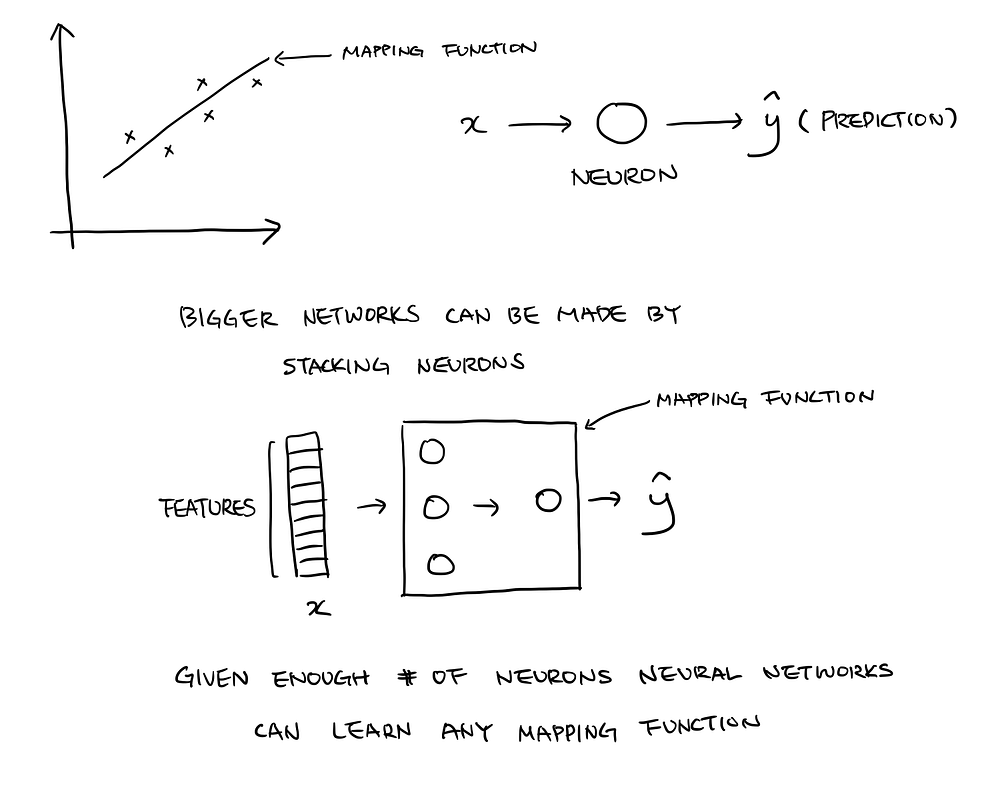 MAPPING FUNCTION
x → ŷ (PREDICTION)
NEURON
BIGGER NETWORKS CAN BE MADE BY
STACKING NEURONS
MAPPING FUNCTION
FEATURES
ŷ
x
GIVEN ENOUGH # OF NEURONS NEURAL NETWORKS
CAN LEARN ANY MAPPING FUNCTION